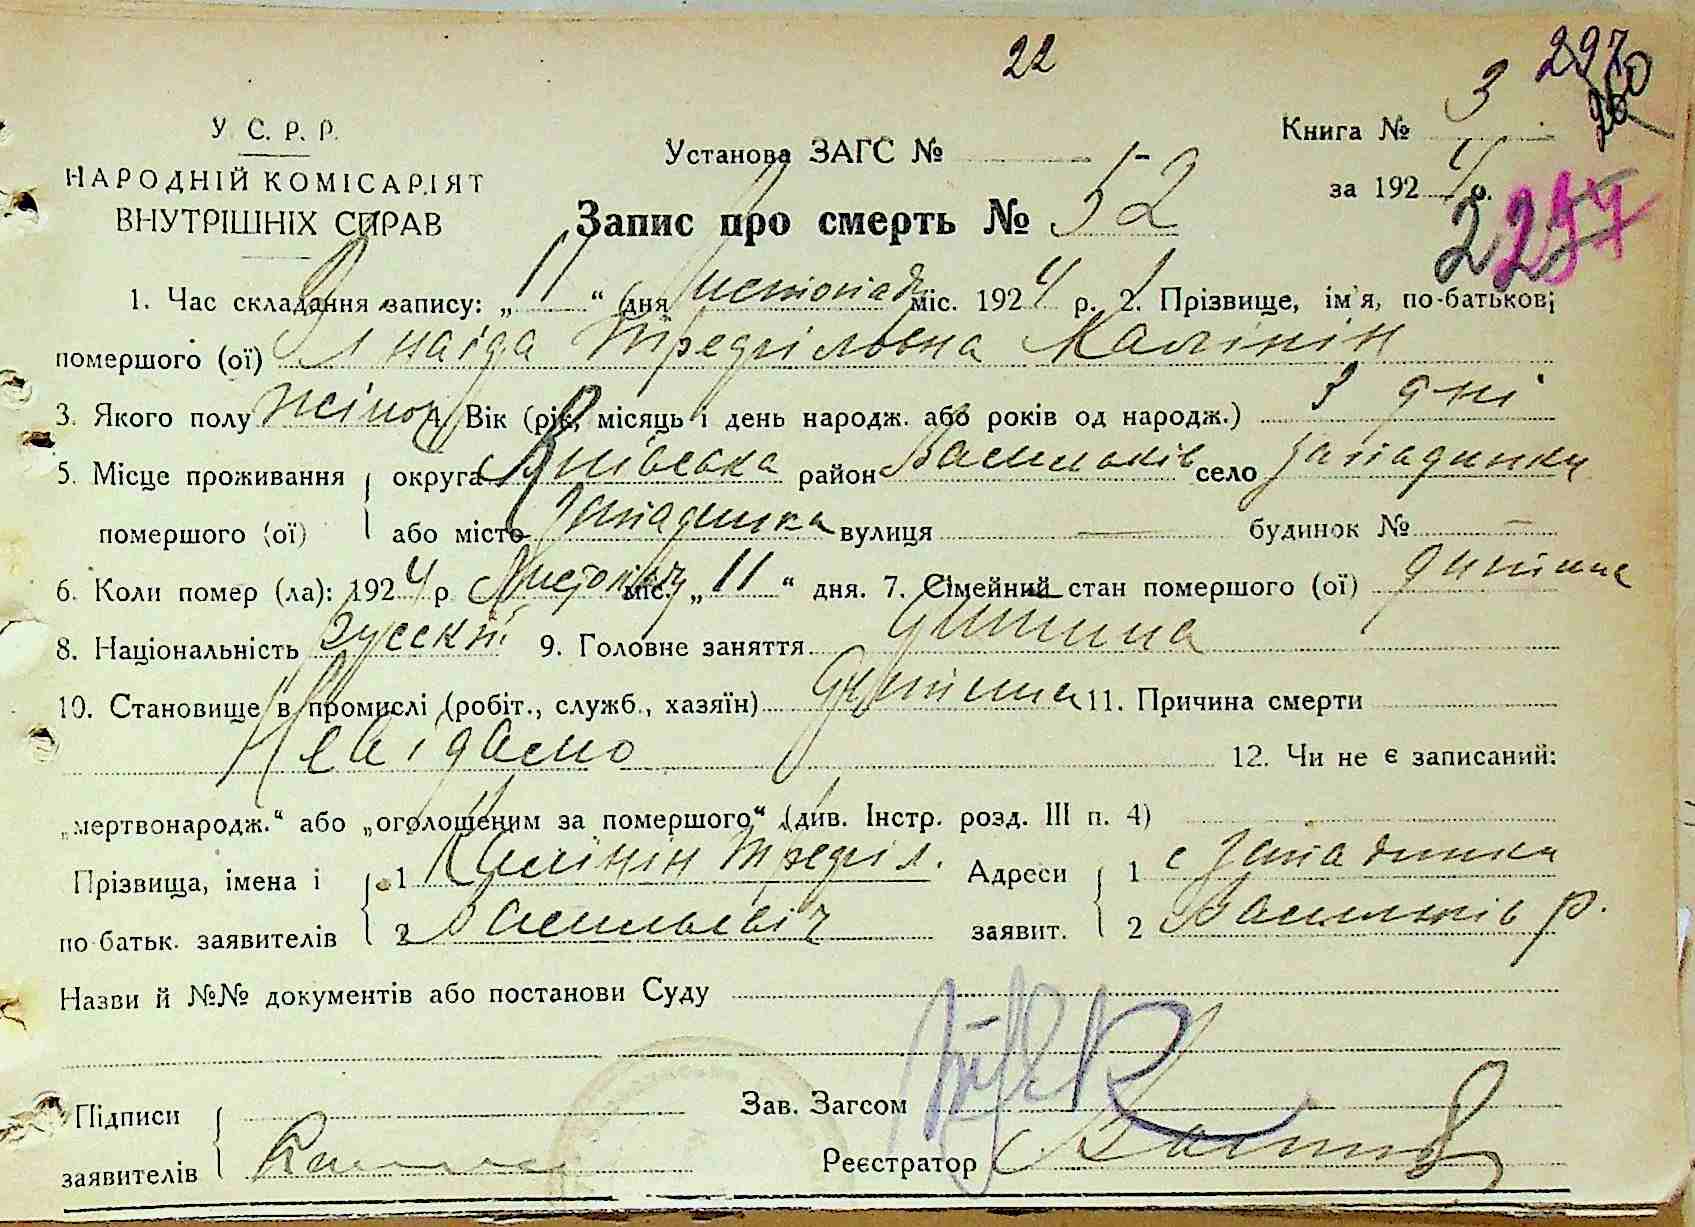 22
297
260
3
У. С. Р. Р.
Книга №
Установа ЗАГС №
НАРОДНІЙ КОМІСАРІЯТ
за 1924 р.
ВНУТРІШНІХ СПРАВ
Запис про смерть № 52
2257
1. Час складання запису: „11“ дня Листопад міс. 1924 р. 2. Прізвище, ім'я, по-батькові
помершого (ої) Калінін
3. Якого полу жіноч 4. Вік (рік, місяць і день народж. або років од народж.) 3 дні
5. Місце проживання округа Київська район Васильків село Западинка
помершого (ої) або місто Западинка вулиця — будинок № —
6. Коли помер (ла): 1924 р. Листопад міс. „11“ дня. 7. Сімейний стан помершого (ої) дитина
8. Національність Русскій 9. Головне заняття дитина
10. Становище в промислі (робіт., служб., хазяїн) дитина 11. Причина смерти
Невідомо 12. Чи не є записаний:
„мертвонародж.“ або „оголошеним за помершого“ (див. Інстр. розд. III п. 4)
Прізвища, імена і 1 Калінін Адреси 1 с Западинка
по батьк. заявителів 2 Васильевіч заявит. 2 Васильків р.
Назви й №№ документів або постанови Суду
Підписи
Зав. Загсом
заявителів
Реєстратор